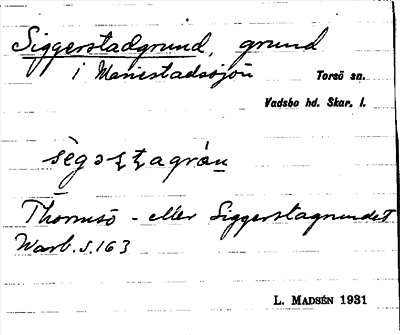 Siggerstadgrund, grund
i Mariestadssjön Torsö sn.
Vadsbo hd. Skar. l.
Thorsö- eller Siggerstagrundet
Warb. s. 163
L. MADSÉN 1931